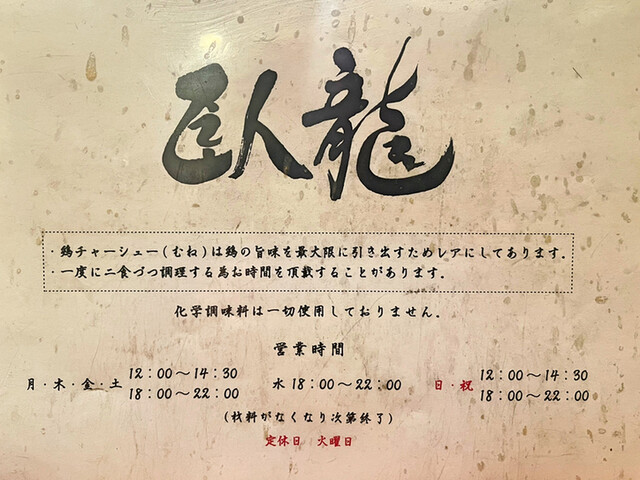 臥龍
・鶏チャーシュー(むね)は鶏の旨味を最大限に引き出すためレアにしてあります.
・一度に二食づつ調理する為お時間を頂戴することがあります.
化学調味料は一切使用しておりません.
営業時間
月・木・金・土 12:00〜14:30 18:00〜22:00 水 18:00〜22:00 日・祝 12:00〜14:30 18:00〜22:00
(材料がなくなり次第終了)
定休日 火曜日